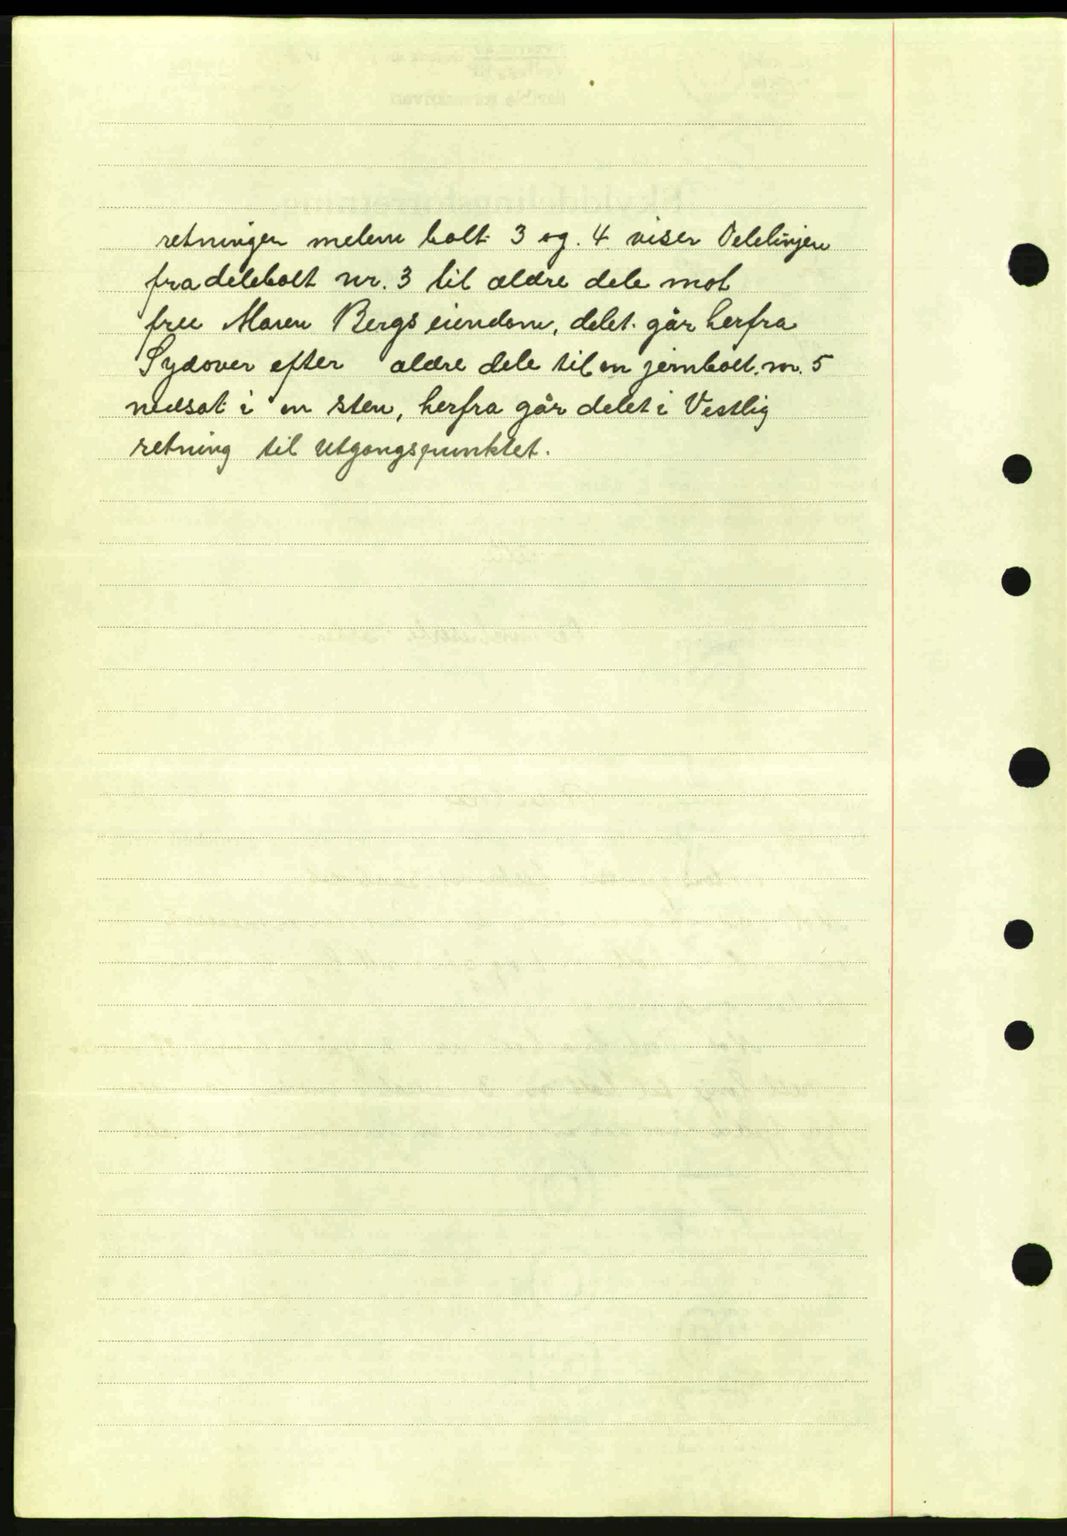 retningen melem bolt 3 og. 4 viser Delelinjen
fra delebolt nr. 3 til ældre dele mot
frue Maren Bergs eiendom, delet går herfra
Sydover efter ældre dele til en jernbolt. nr. 5
nedsat i en sten, herfra går delet i Vestlig
retning til utgangspunktet.